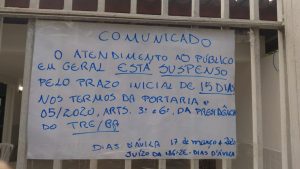 COMUNICADO
O ATENDIMENTO AO PÚBLICO
EM GERAL ESTÁ SUSPENSO
PELO PRAZO INICIAL DE 15 DIAS
NOS TERMOS DA PORTARIA
05/2020, ARTS. 3º e 6º, DA PRESIDÊNCIA
DO TRE/BA
DIAS D'ÁVILA 17 de março de 2020
JUÍZO DA 186ª ZE - DIAS D'ÁVILA